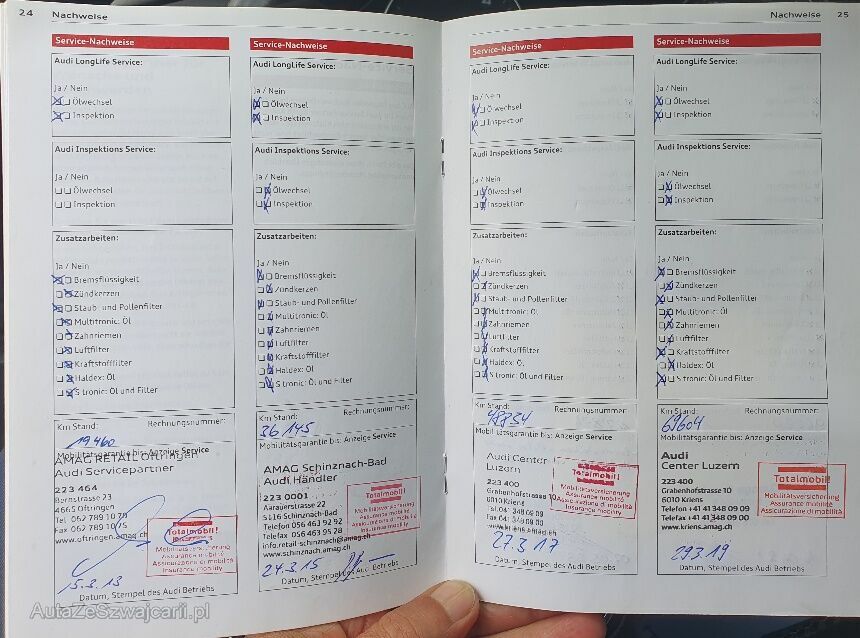 24 Nachweise
Service-Nachweise
Audi LongLife Service:
Ja / Nein
Ölwechsel
Inspektion
Audi Inspektions Service:
Ja / Nein
Ölwechsel
Inspektion
Zusatzarbeiten:
Ja / Nein
Bremsflüssigkeit
Zündkerzen
Staub- und Pollenfilter
Multitronic: Öl
Zahnriemen
Luftfilter
Kraftstofffilter
Haldex: Öl
S tronic: Öl und Filter
Km Stand: Rechnungsnummer:
19460
Mobilitätsgarantie bis: Anzeige Service
AMAG RETAIL Oftringen
Audi Servicepartner
223 464
Bernstrasse 23
4665 Oftringen
Tel 062 789 10 78
Fax 062 789 10 75
www.oftringen.amag.ch
Totalmobil!
Mobilitätsversicherung
Assurance mobilité
Assicurazione di mobilità
Insurance mobility
15.3.13
Datum, Stempel des Audi Betriebs
Service-Nachweise
Audi LongLife Service:
Ja / Nein
Ölwechsel
Inspektion
Audi Inspektions Service:
Ja / Nein
Ölwechsel
Inspektion
Zusatzarbeiten:
Ja / Nein
Bremsflüssigkeit
Zündkerzen
Staub- und Pollenfilter
Multitronic: Öl
Zahnriemen
Luftfilter
Kraftstofffilter
Haldex: Öl
S tronic: Öl und Filter
Km Stand: Rechnungsnummer:
36 145
Mobilitätsgarantie bis: Anzeige Service
AMAG Schinznach-Bad
Audi Händler
223 0001
Aarauerstrasse 22
5116 Schinznach-Bad
Telefon 056 463 92 92
Telefax 056 463 95 28
info.retail-schinznach@amag.ch
www.schinznach.amag.ch
Totalmobil!
Mobilitätsversicherung
Assurance mobilité
Assicurazione di mobilità
Insurance mobility
24.3.15
Datum, Stempel des Audi Betriebs
Nachweise 25
Service-Nachweise
Audi LongLife Service:
Ja / Nein
Ölwechsel
Inspektion
Audi Inspektions Service:
Ja / Nein
Ölwechsel
Inspektion
Zusatzarbeiten:
Ja / Nein
Bremsflüssigkeit
Zündkerzen
Staub- und Pollenfilter
Multitronic: Öl
Zahnriemen
Luftfilter
Kraftstofffilter
Haldex: Öl
S tronic: Öl und Filter
Km Stand: Rechnungsnummer:
Mobilitätsgarantie bis: Anzeige Service
Audi Center
Luzern
223 400
Grabenhofstrasse 10
6010 Kriens
Tel 041 348 09 09
Fax 041 348 09 00
www.kriens.amag.ch
Totalmobil!
Mobilitätsversicherung
Assurance mobilité
Assicurazione di mobilità
Insurance mobility
27.3.17
Datum, Stempel des Audi Betriebs
Service-Nachweise
Audi LongLife Service:
Ja / Nein
Ölwechsel
Inspektion
Audi Inspektions Service:
Ja / Nein
Ölwechsel
Inspektion
Zusatzarbeiten:
Ja / Nein
Bremsflüssigkeit
Zündkerzen
Staub- und Pollenfilter
Multitronic: Öl
Zahnriemen
Luftfilter
Kraftstofffilter
Haldex: Öl
S tronic: Öl und Filter
Km Stand: Rechnungsnummer:
69604
Mobilitätsgarantie bis: Anzeige Service
Audi
Center Luzern
223 400
Grabenhofstrasse 10
6010 Kriens
Telefon +41 41 348 09 09
Telefax +41 41 348 09 00
www.kriens.amag.ch
Totalmobil!
Mobilitätsversicherung
Assurance mobilité
Assicurazione di mobilità
29.3.19
Datum, Stempel des Audi Betriebs
AutaZeSzwajcarii.pl